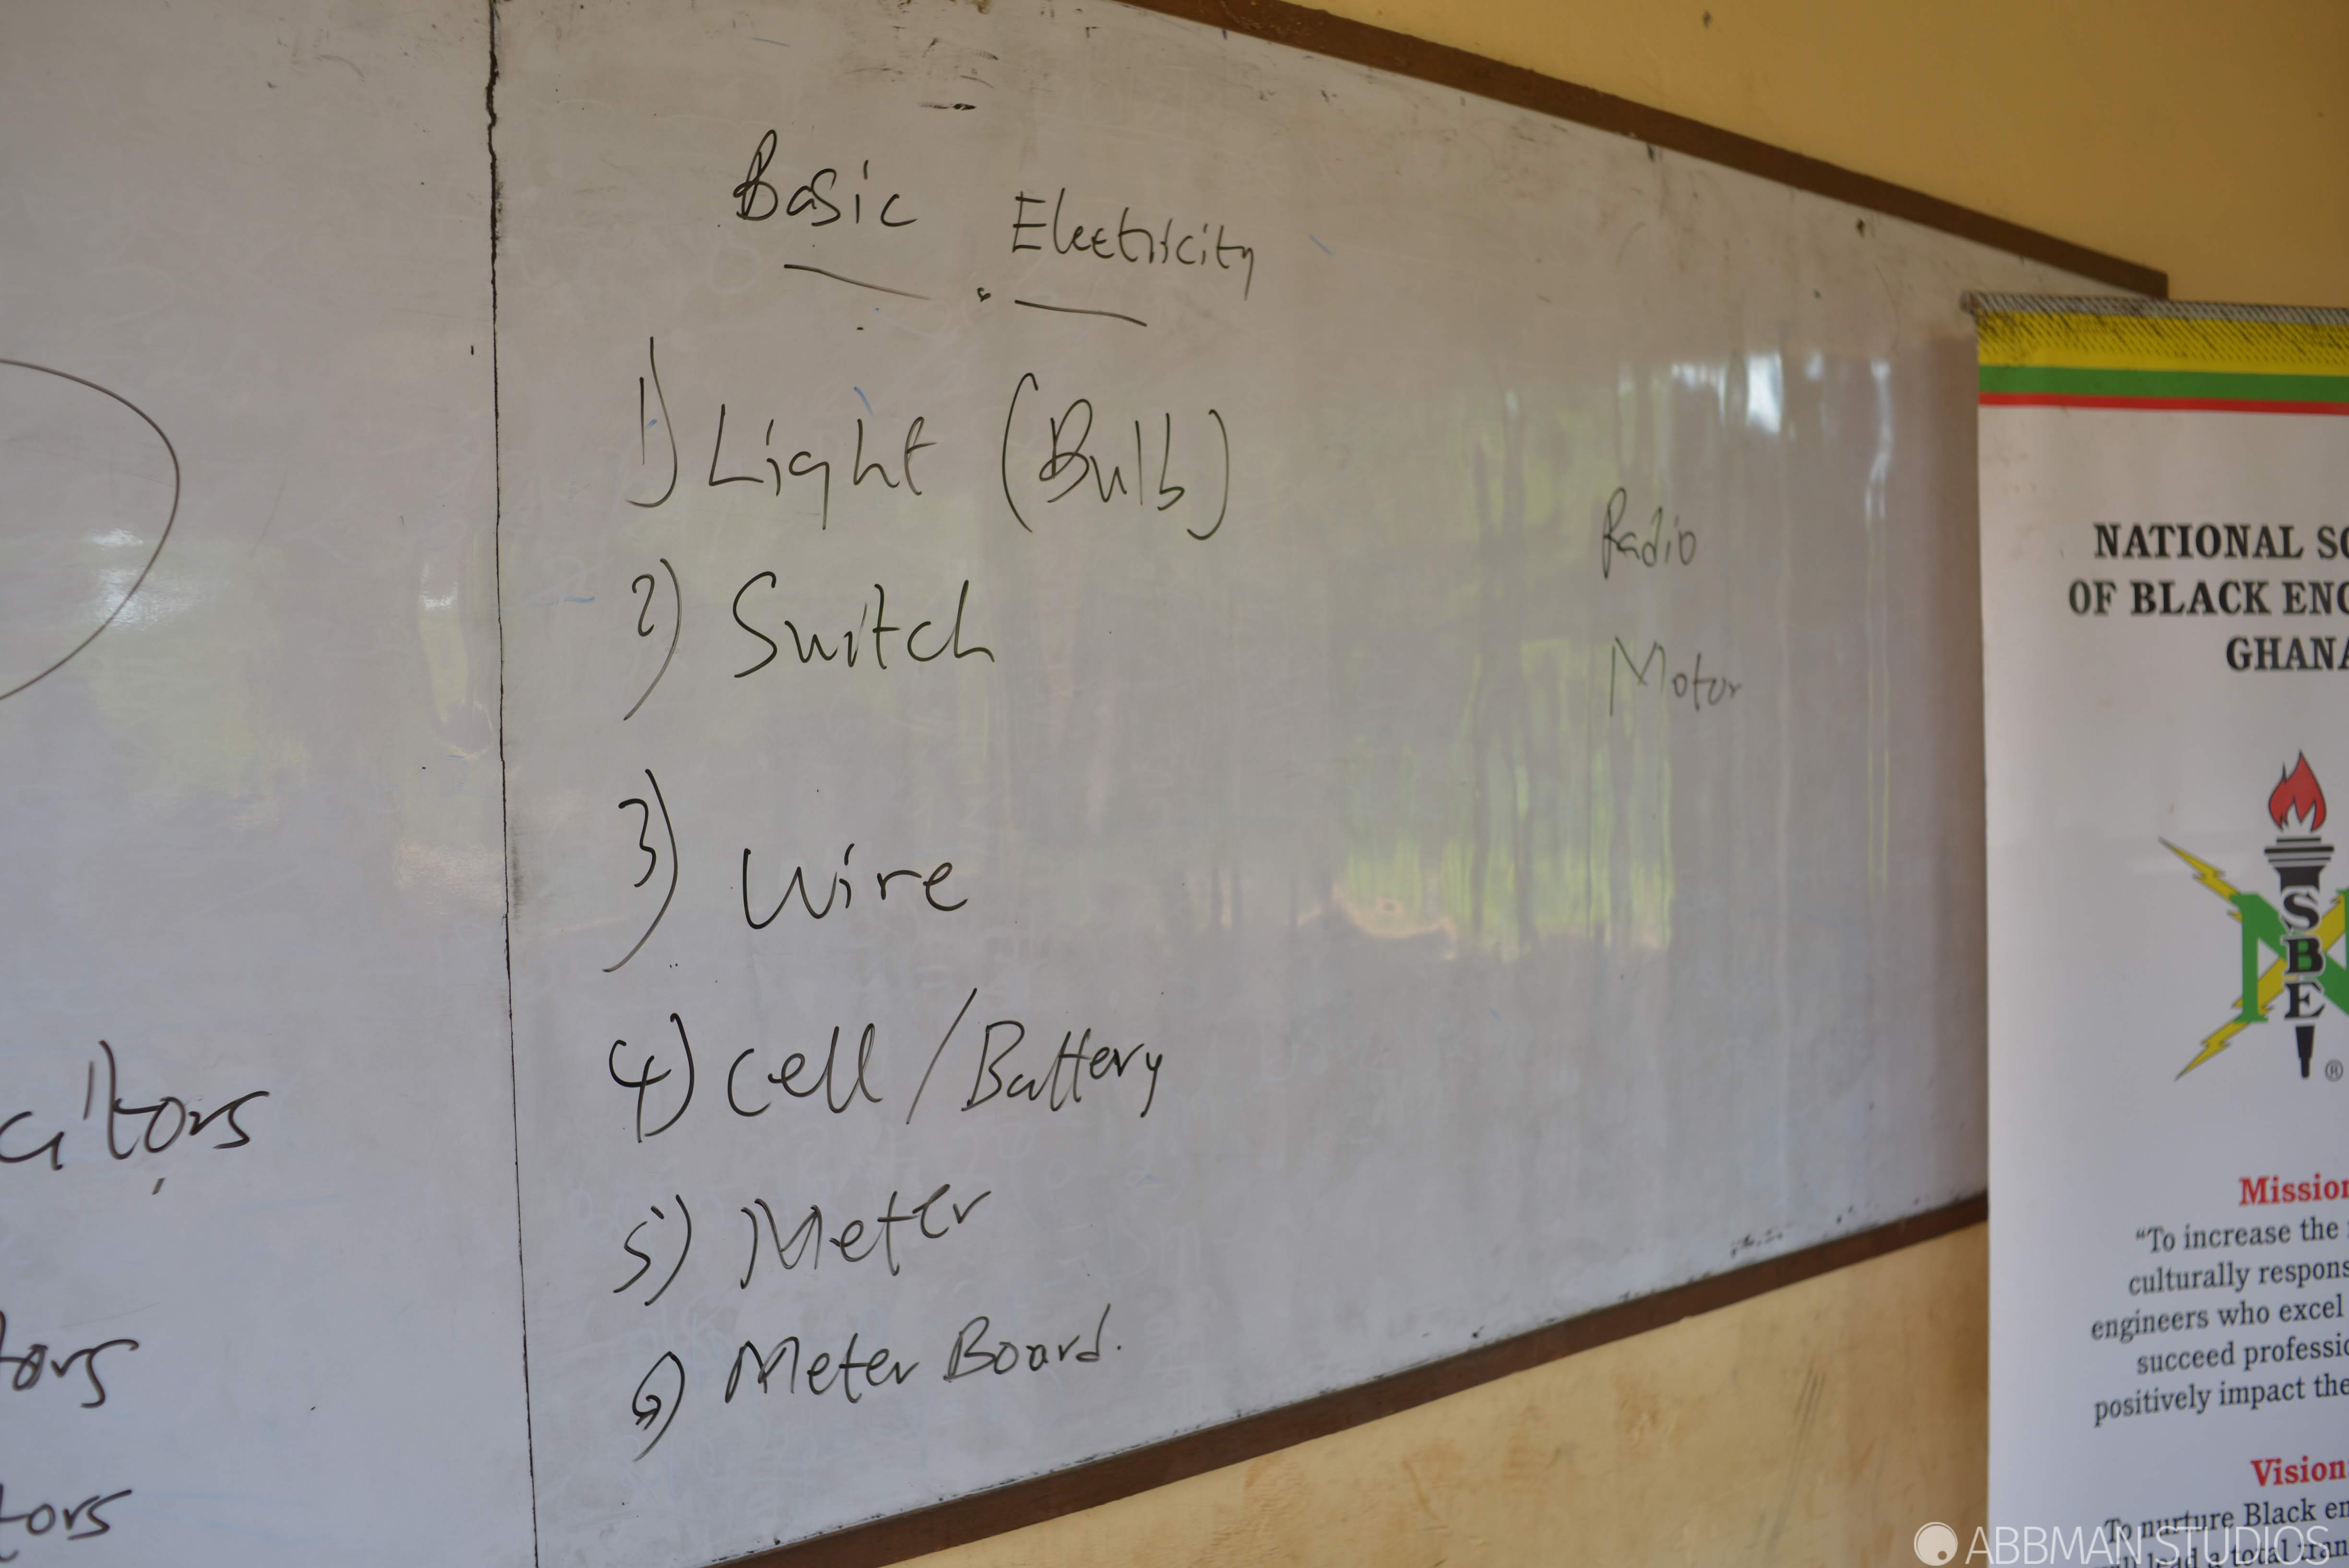 citors
tors
tors
Basic Electricity
1) Light (Bulb)
2) Switch
3) Wire
4) Cell / Battery
5) Meter
6) Meter Board.
Radio
Motor
NATIONAL SO
OF BLACK ENG
GHANA
SBE
®
Mission
“To increase the
culturally respons
engineers who excel
succeed professio
positively impact the
Vision
To nurture Black en
ABBMAN STUDIOS